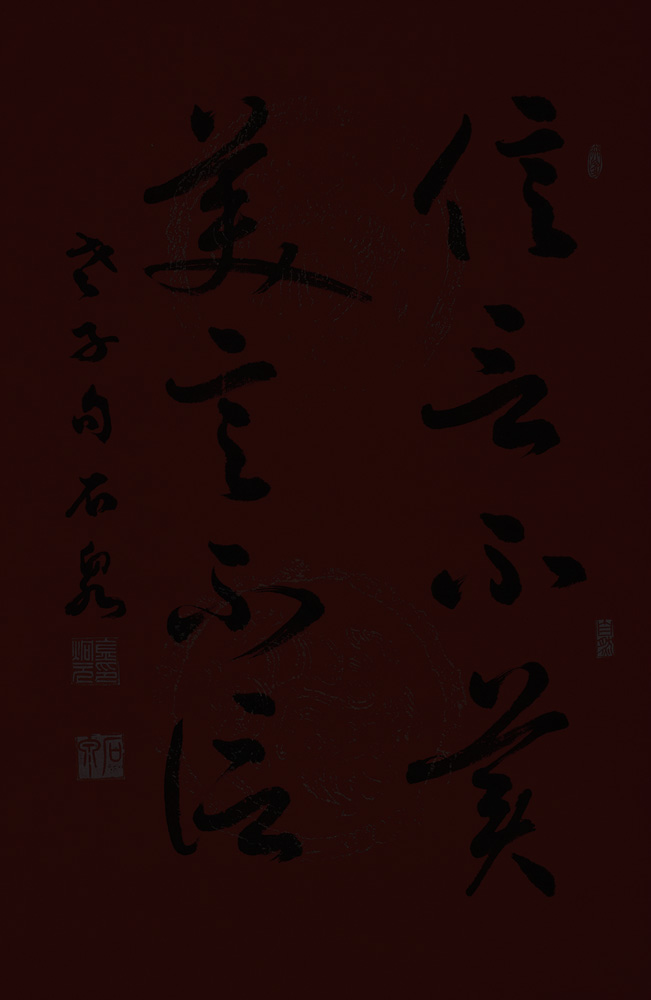 信言不美
美言不信
老子句 石泉
石泉